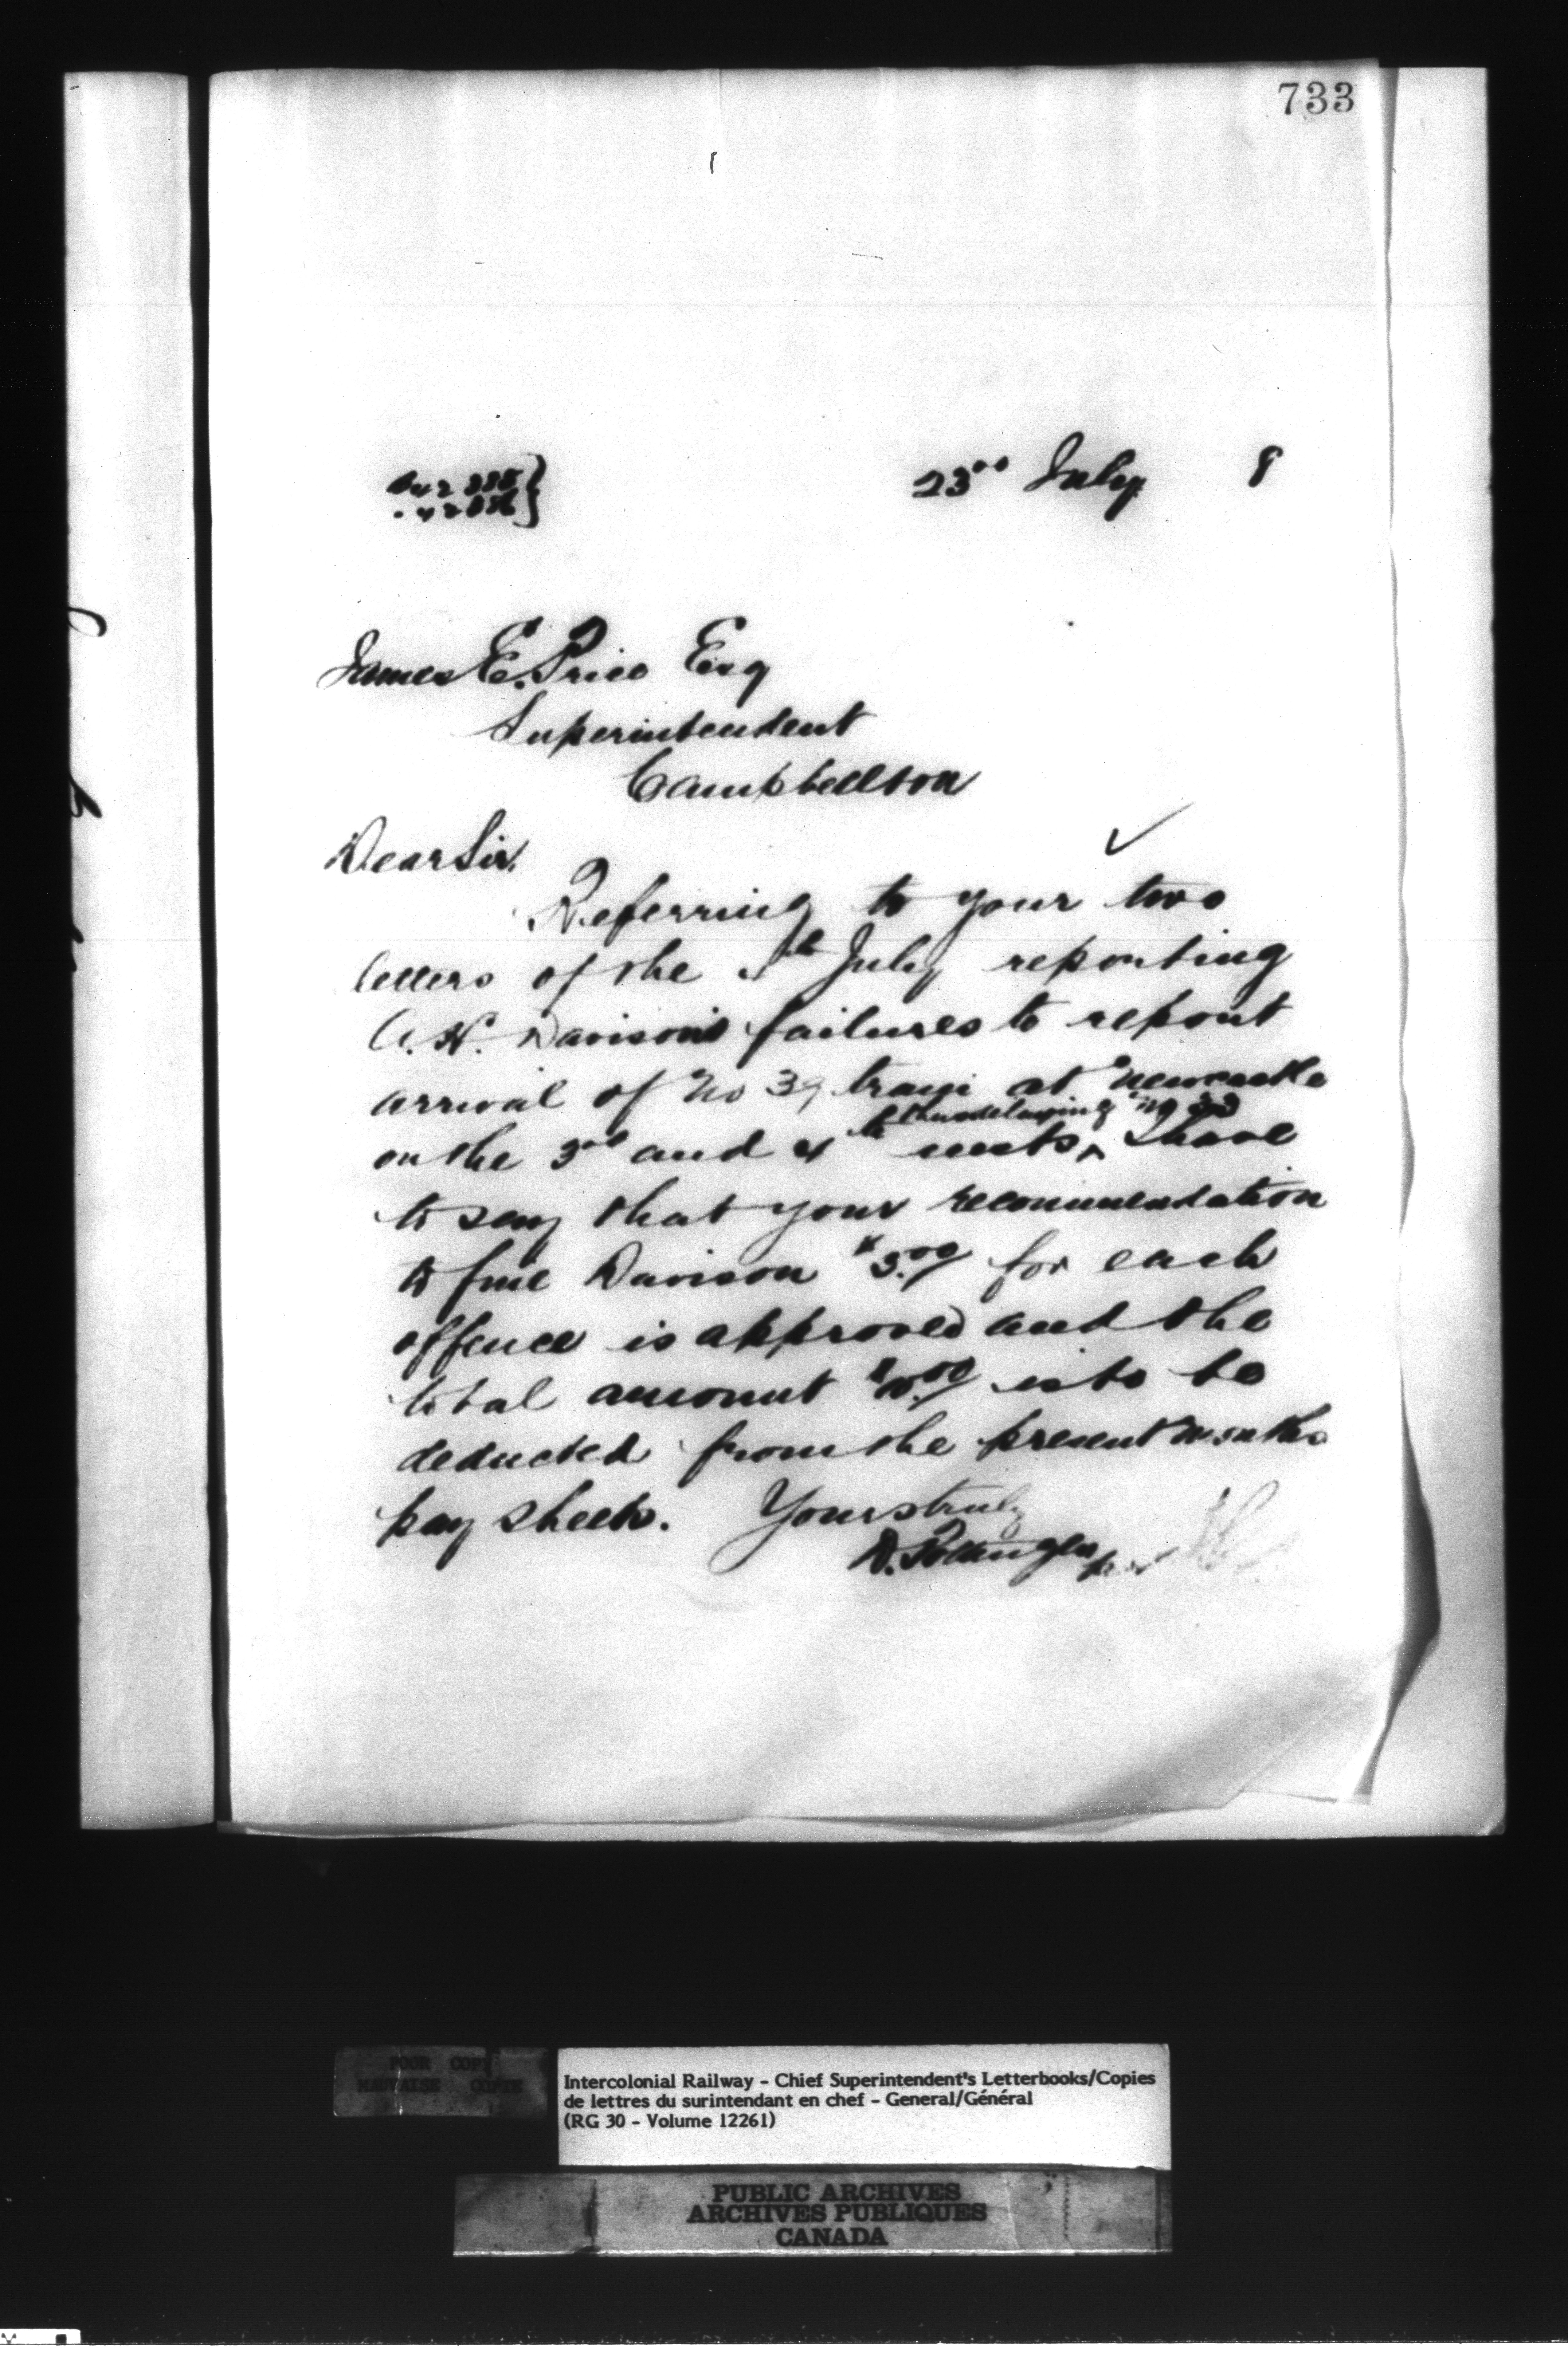 733
23rd July 8
James E. Price Esq
Superintendent
Campbellton
Dear Sir.
Referring to your two
letters of the 4th July reporting
A. H. Davison's failures to report
arrival of No 39 train at Newcastle
thus delaying No
on the 3rd and 4th insts, I have
to say that your recommendation
to fine Davison for each
offence is approved and the
total amount is to be
deducted from the present months
pay sheets. Yours truly
D. Pottinger
POOR COPY
MAUVAISE COPIE
Intercolonial Railway - Chief Superintendent's Letterbooks/Copies
de lettres du surintendant en chef - General/Général
(RG 30 - Volume 12261)
PUBLIC ARCHIVES
ARCHIVES PUBLIQUES
CANADA